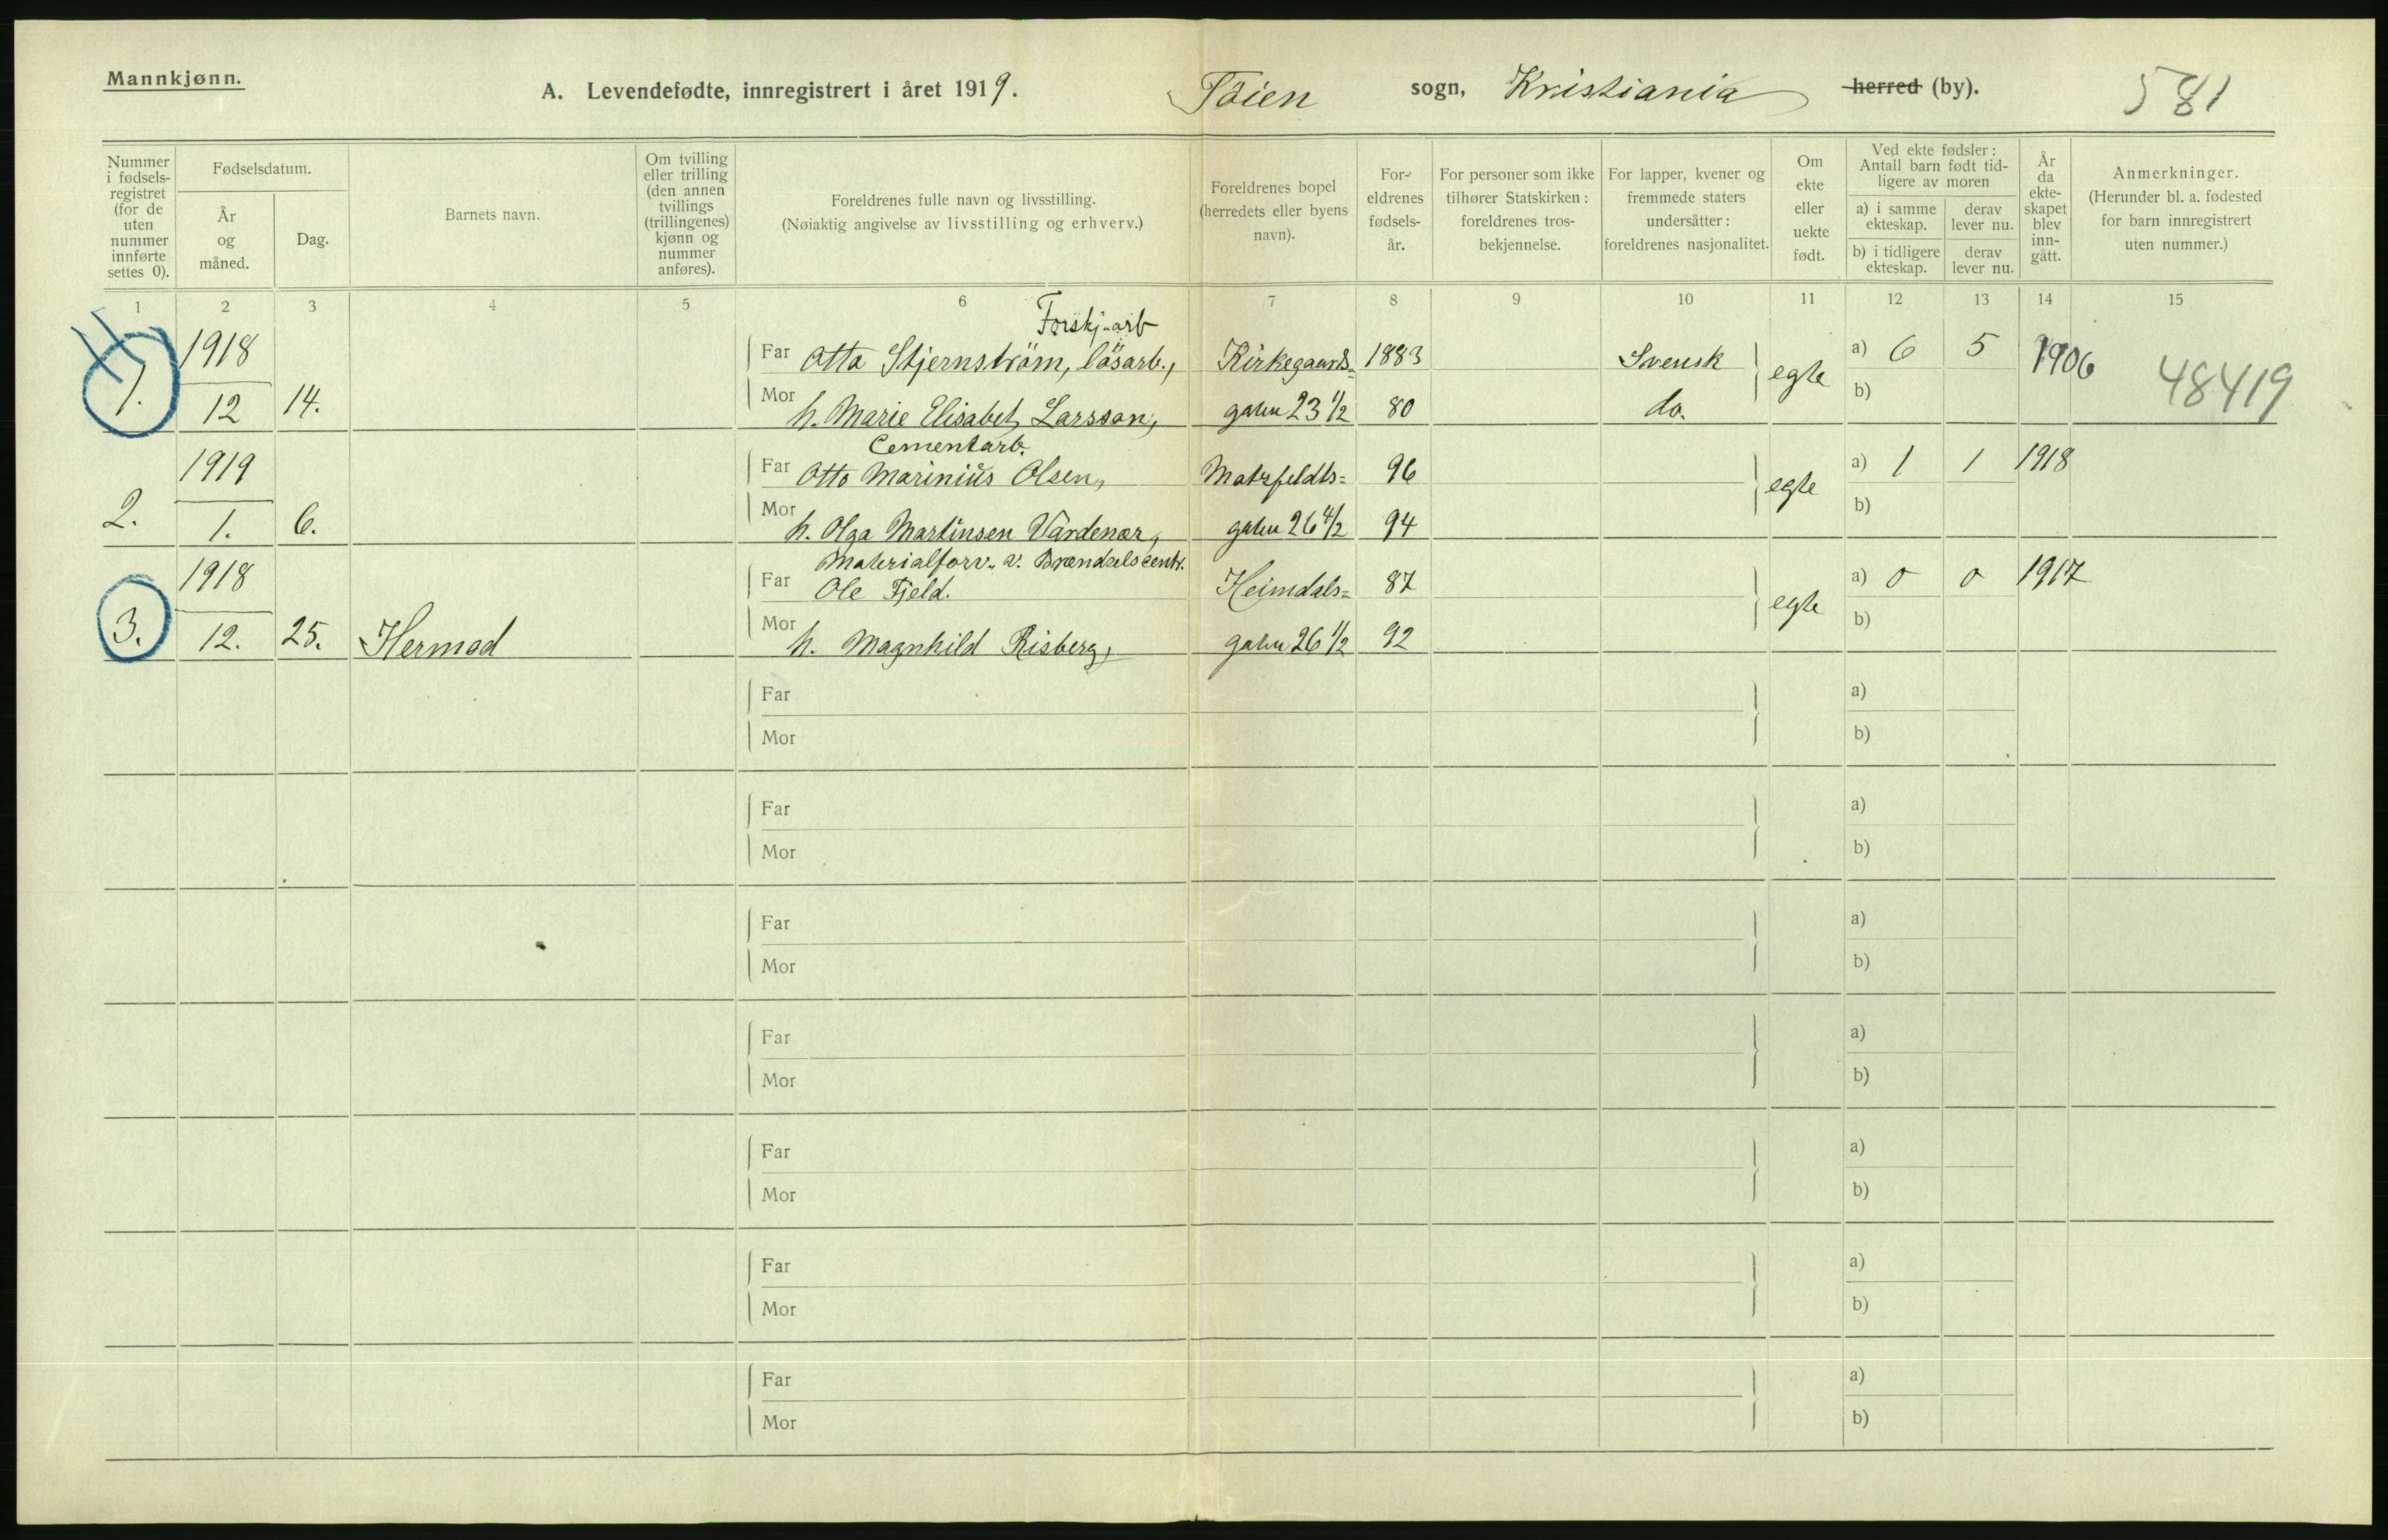 Mannkjønn.
A. Levendefødte, innregistrert i året 1919. Töien sogn, Kristiania herred (by). 581
Nummer i fødselsregistret (for de uten nummer innførte settes 0).
Fødselsdatum.
År og måned.
Dag.
Barnets navn.
Om tvilling eller trilling (den annen tvillings (trillingenes) kjønn og nummer anføres).
Foreldrenes fulle navn og livsstilling.
(Nøiaktig angivelse av livsstilling og erhverv.)
Foreldrenes bopel (herredets eller byens navn).
Foreldrenes fødselsår.
For personer som ikke tilhører Statskirken: foreldrenes trosbekjennelse.
For lapper, kvener og fremmede staters undersåtter: foreldrenes nasjonalitet.
Om ekte eller uekte født.
Ved ekte fødsler: Antall barn født tidligere av moren
a) i samme ekteskap. derav lever nu.
b) i tidligere ekteskap. derav lever nu.
År da ekteskapet blev inngått.
Anmerkninger.
(Herunder bl. a. fødested for barn innregistrert uten nummer.)
1 2 3 4 5 6 7 8 9 10 11 12 13 14 15
Forskj. arb
1. 1918 Far Otto Stjernström, lösarb., Kirkegaards= 1883 Svensk egte a) 6 5 1906 48419
12 14. Mor h. Marie Elisabet Larsson, gaten 23 1/2 80 do. b)
Cementarb.
2. 1919 Far Otto Marinius Olsen, Motzfeldts= 96 egte a) 1 1 1918
1. 6. Mor h. Olga Martinsen Vardenær, gaten 26 4/2 94 b)
Materialforv. v. Brændselscentr.
3. 1918 Far Ole Fjeld. Heimdals= 87 egte a) 0 0 1917
12. 25. Hermod Mor h. Magnhild Risberg, gaten 26 1/2 92 b)
Far a)
Mor b)
Far a)
Mor b)
Far a)
Mor b)
Far a)
Mor b)
Far a)
Mor b)
Far a)
Mor b)
Far a)
Mor b)